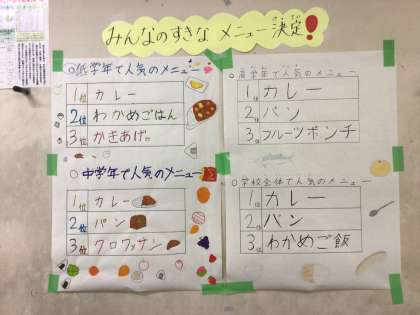 みんなのすきな メニュー決定!
○低学年で人気のメニュー
1位 カレー
2位 わかめごはん
3位 かきあげ
○高学年で人気のメニュー
1位 カレー
2位 パン
3位 フルーツポンチ
○中学年で人気のメニュー
1位 カレー
2位 パン
3位 クロワッサン
○学校全体で人気のメニュー
1位 カレー
2位 パン
3位 わかめご飯